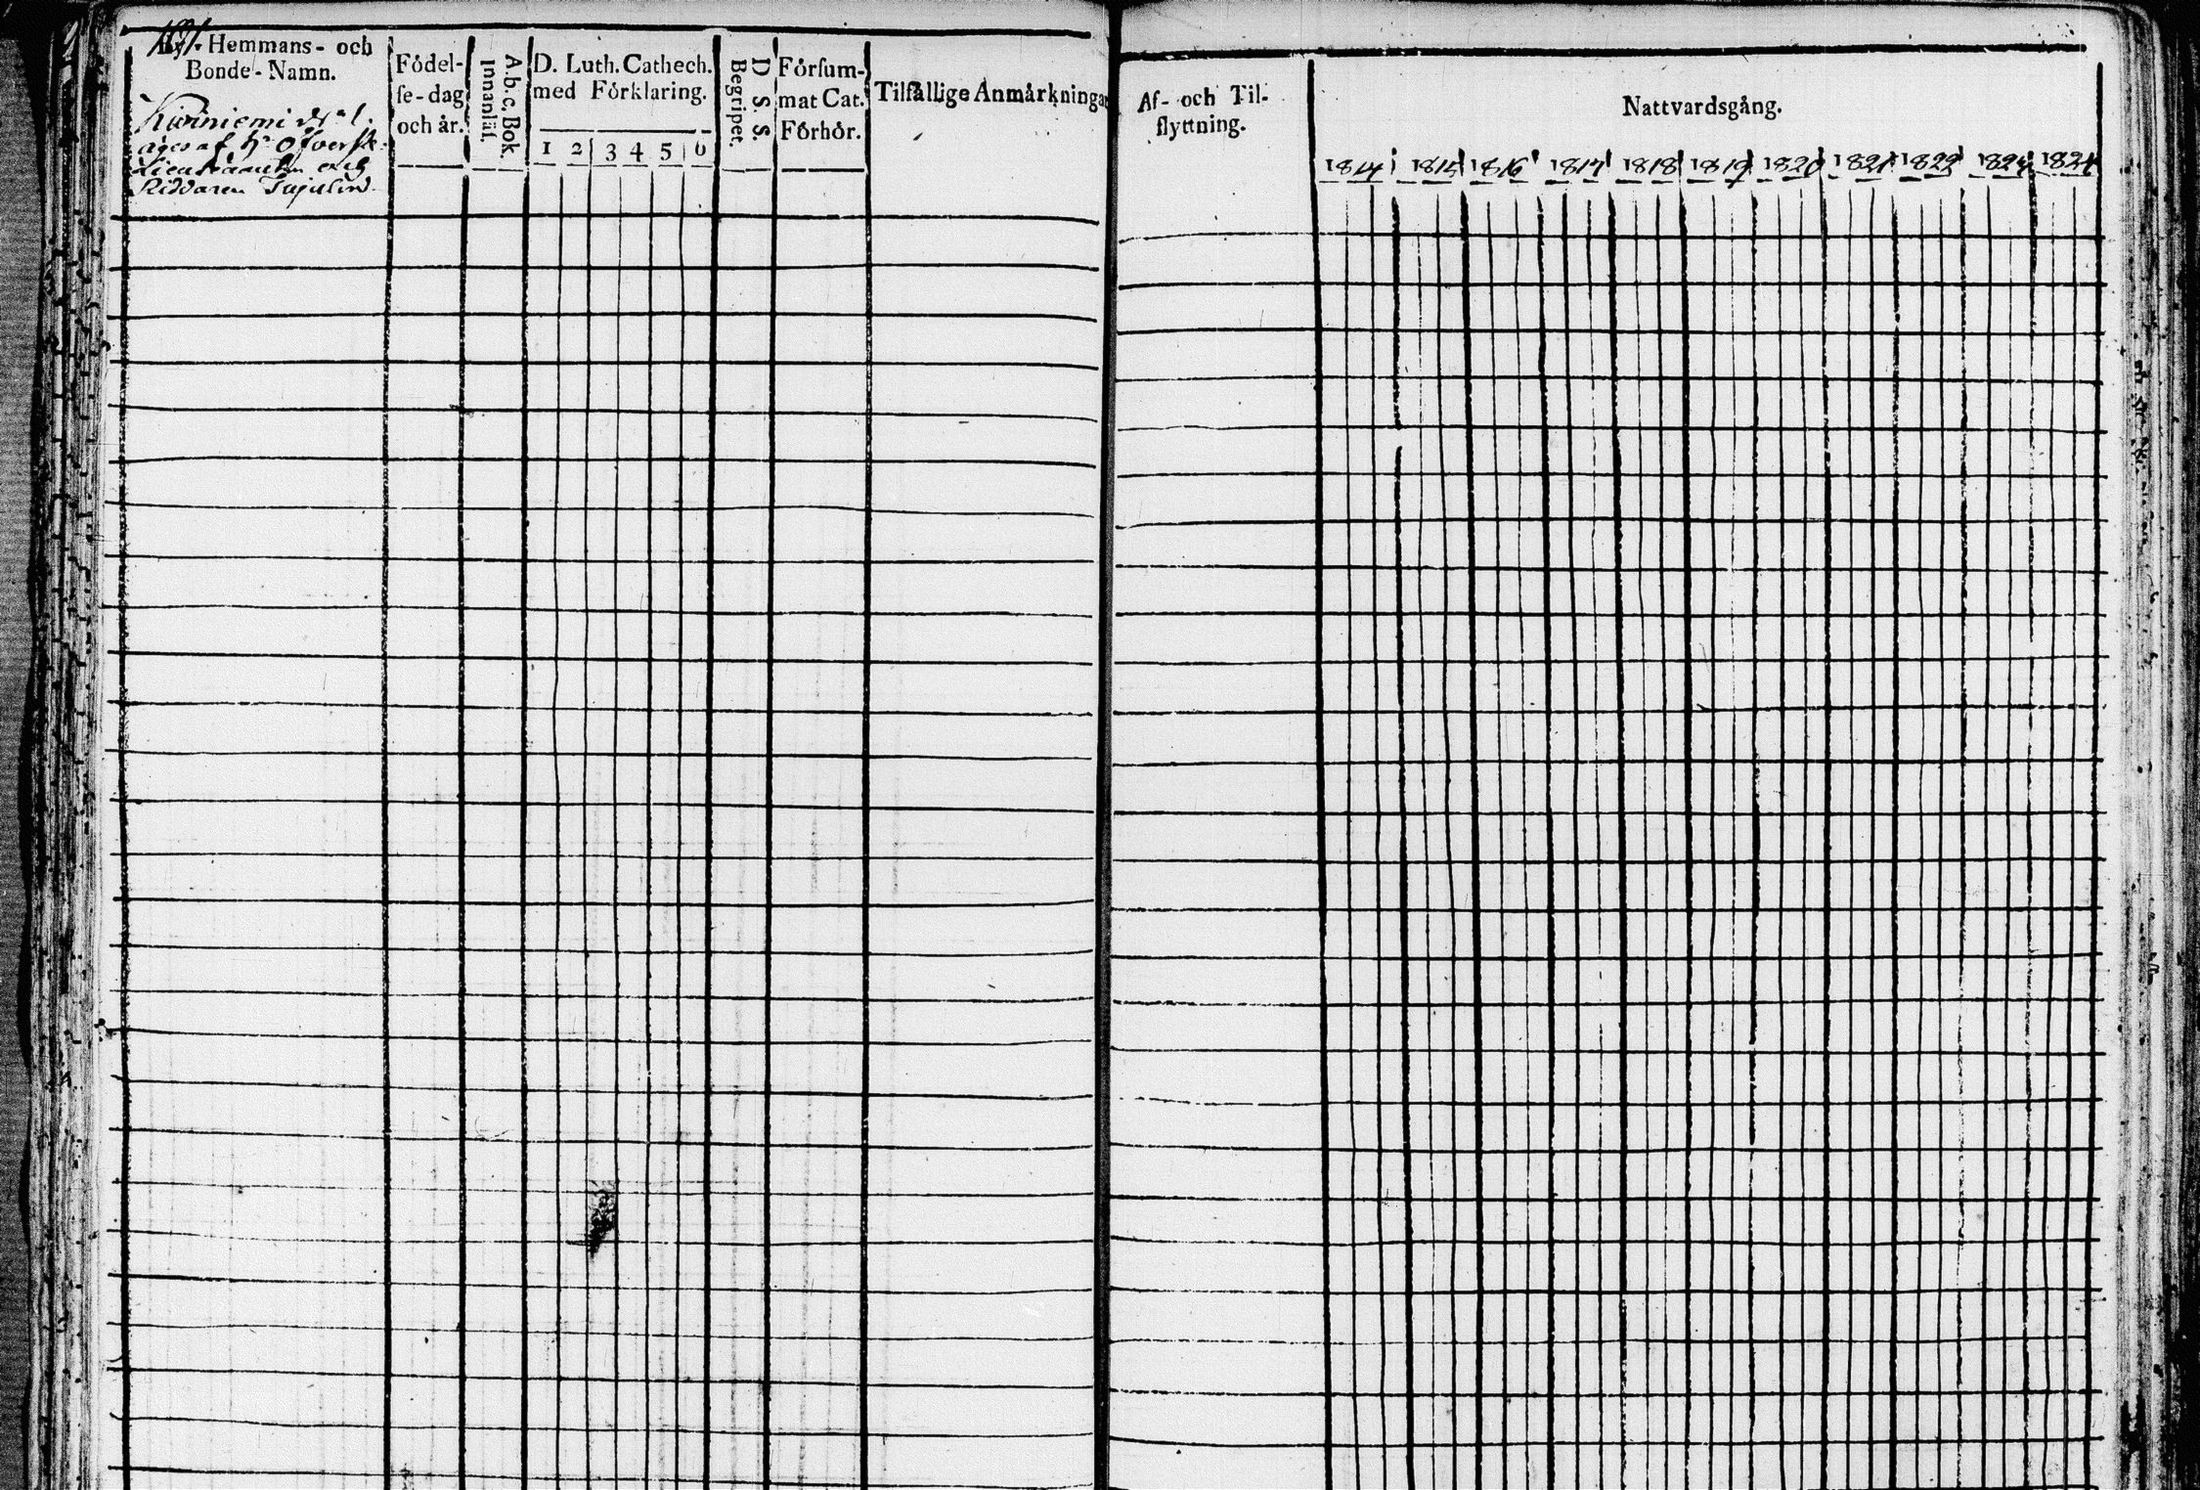 By- Hemmans- och
Bonde-Namn.
Kiviniemi N:o 1.
äges af Hr Öfverste
Lieutenanten och
Riddaren
Födel-
se-dag
och år.
A.b.c. Bok.
Innanläs.
D. Luth. Cathech.
med Förklaring.
1 2 3 4 5 6
D. S. S.
Begripet.
Försum-
mat Cat.
Förhör.
Tilfällige Anmärkningar
Af- och Til-
flyttning.
Nattvardsgång.
1814 1815 1816 1817 1818 1819 1820 1821 1822 1823 1824